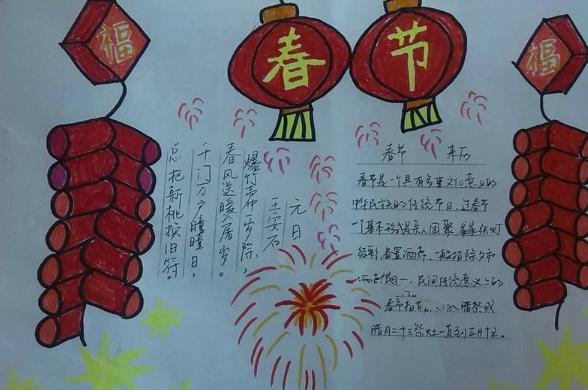 福
春
节
福
元日
王安石
爆竹声中一岁除，
春风送暖入屠苏。
千门万户曈曈日，
总把新桃换旧符。
春节 来历
春节是一个具有多重文化意义的
中华民族的传统节日。过春节
一个基本形式是亲人团聚
结彩，备置酒席，一般指除夕和
民间传统意义上的
春节指
腊月二十三祭灶一直到正月十五。